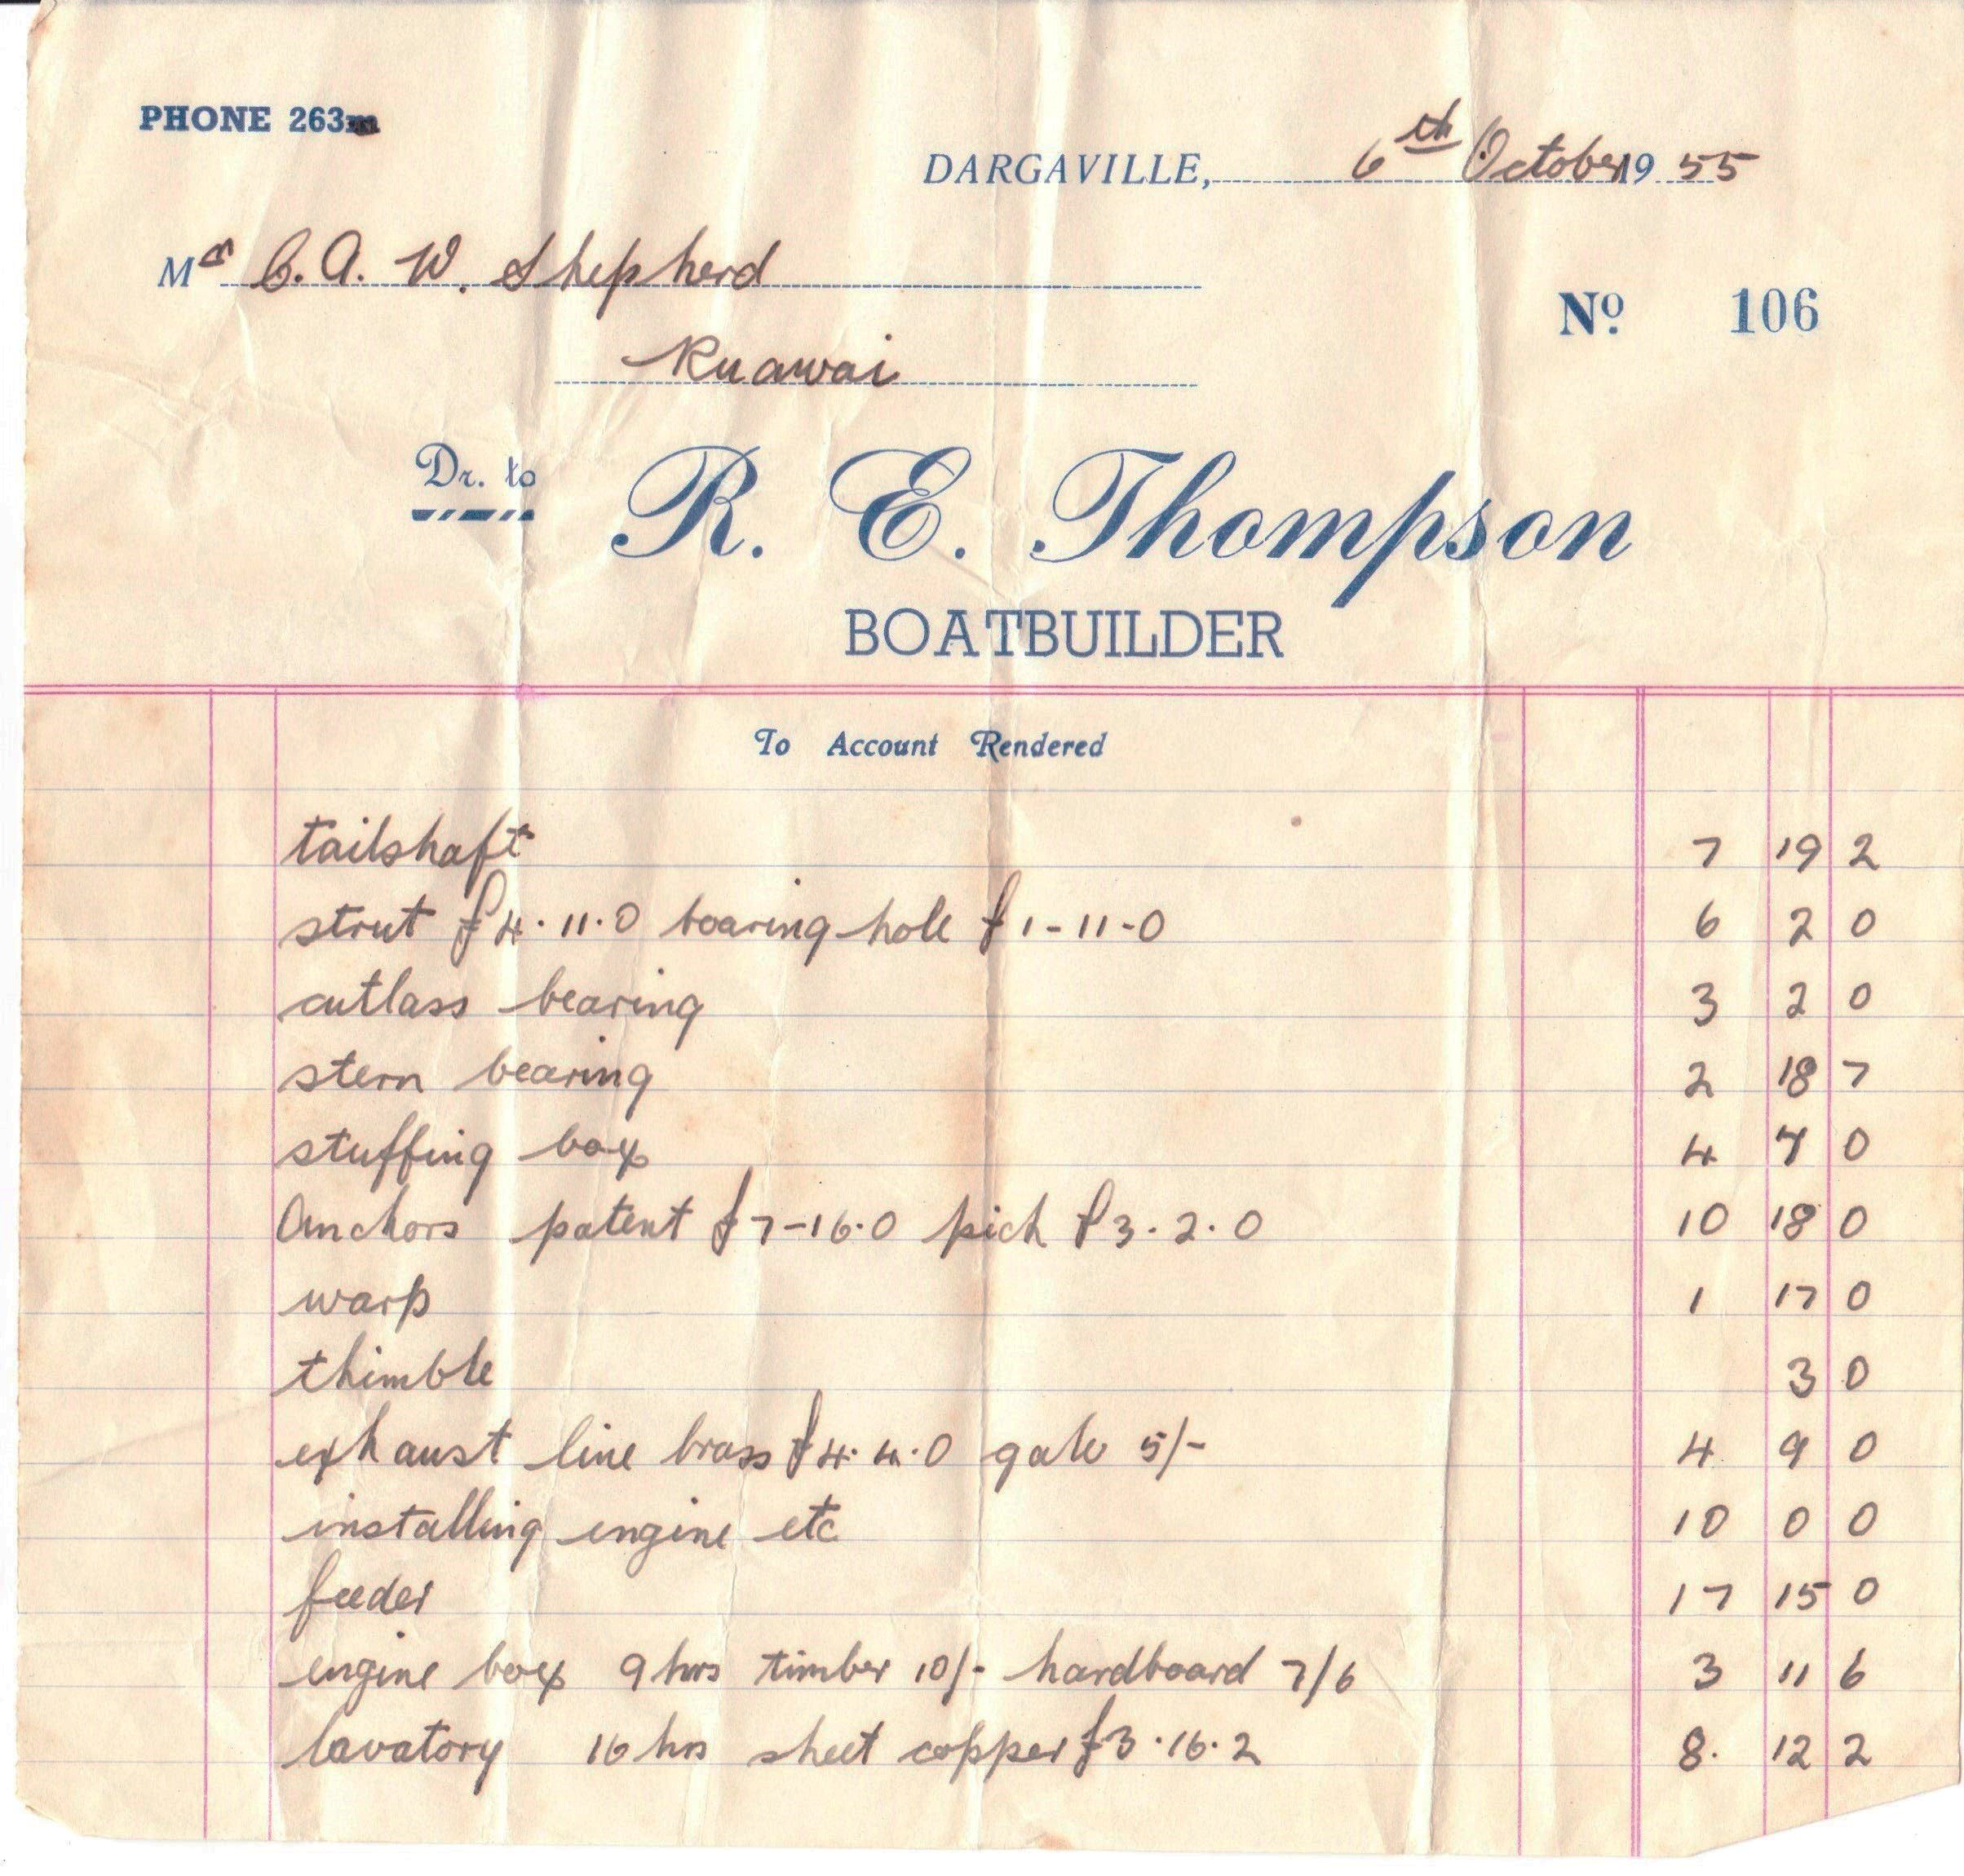 PHONE 263m
DARGAVILLE, 6th October 1955
Mr C. A. W. Shepherd
No. 106
Ruawai
Dr. to R. E. Thompson
BOATBUILDER
To Account Rendered
tailshaft 7 19 2
strut £4.11.0 boaring hole £1-11-0 6 2 0
cutlass bearing 3 2 0
stern bearing 2 18 7
stuffing box 4 7 0
Anchors patent £7-16.0 pick £3.2.0 10 18 0
warp 1 17 0
thimble 3 0
exhaust line brass £4.4.0 galv 5/- 4 9 0
installing engine etc 10 0 0
feeder 17 15 0
engine box 9 hrs timber 10/- hardboard 7/6 3 11 6
lavatory 16 hrs sheet copper £3.16.2 8. 12 2